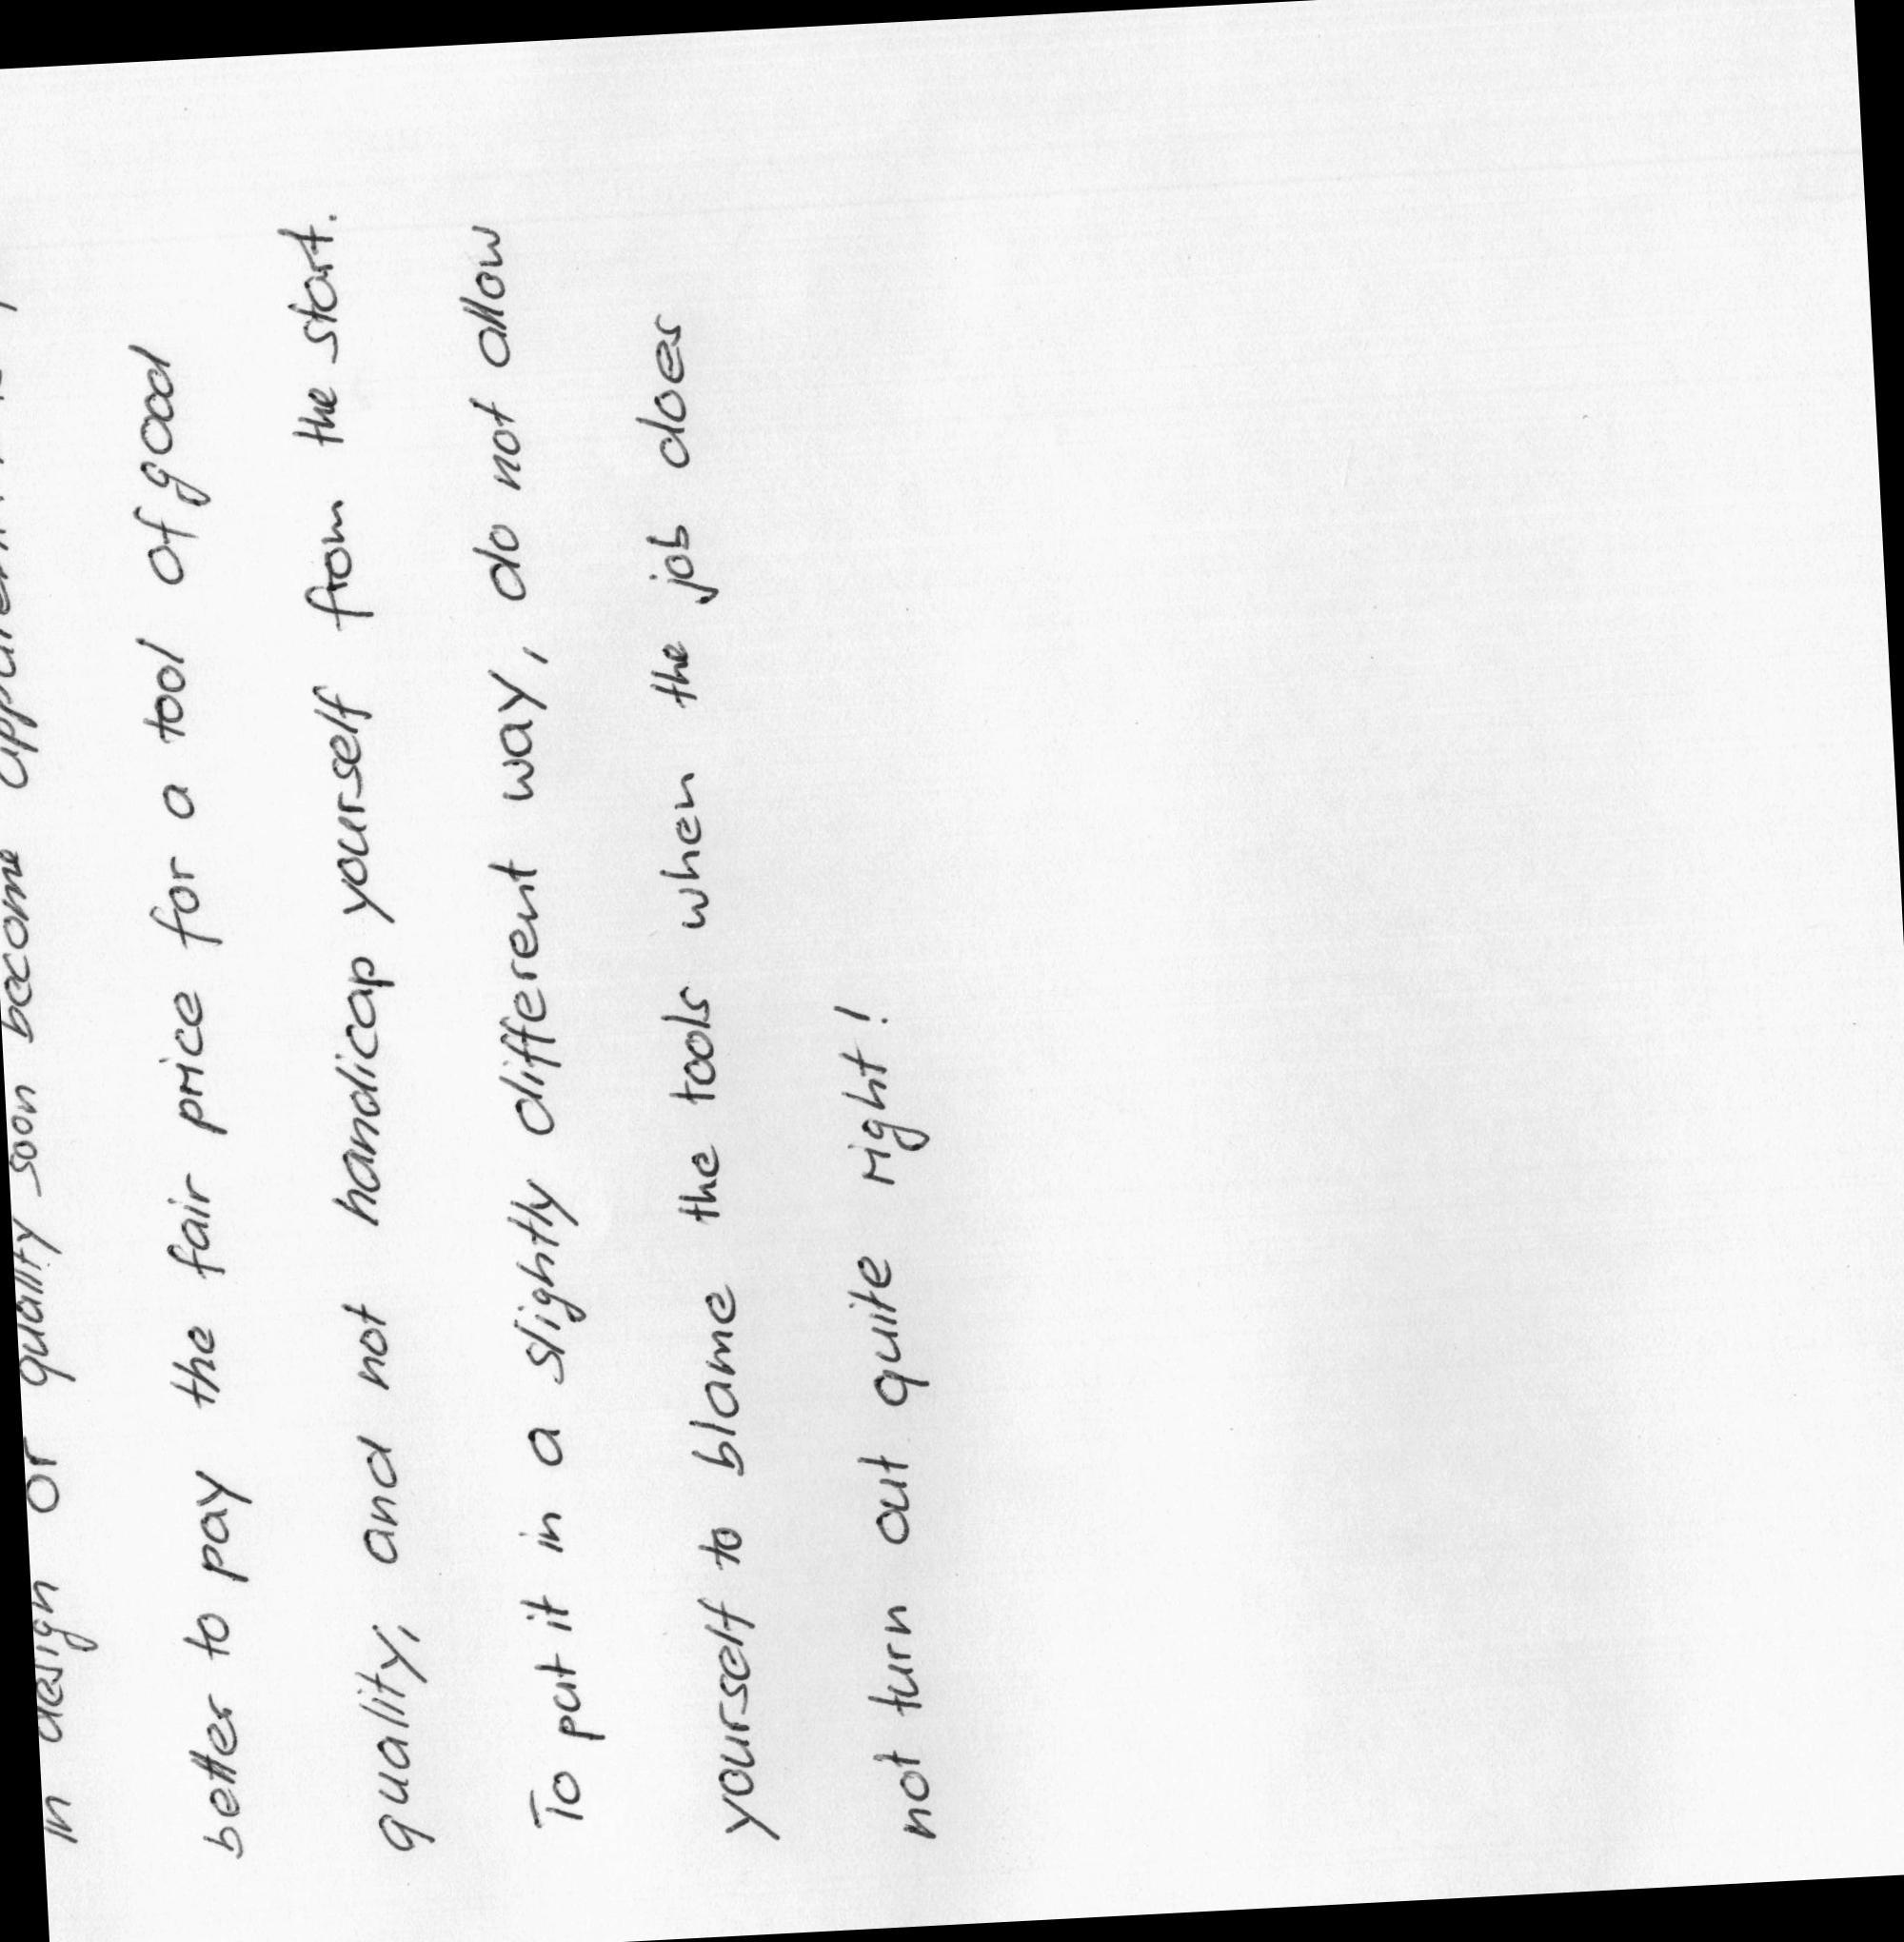 in design or quality soon become
better to pay the fair price for a tool of good
quality, and not handicap yourself from the start.
To put it in a slightly different way, do not allow
yourself to blame the tools when the job does
not turn out quite right!